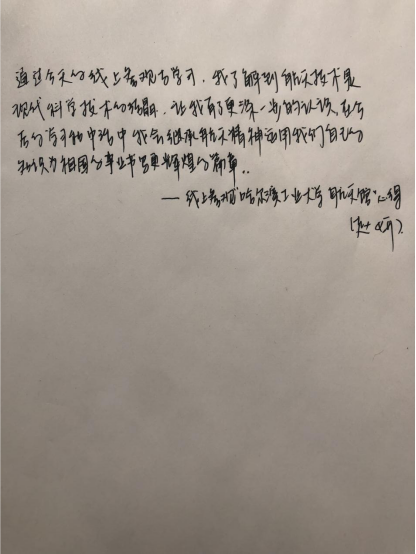 通过今天的线上参观与学习，我了解到航天技术是
现代科学技术的结晶，让我有了更深一步的认识，在今
后的学习和生活中我会继承航天精神运用我们自己的
知识为祖国的事业书写更辉煌的篇章..
——线上参观“哈尔滨工业大学航天馆”心得